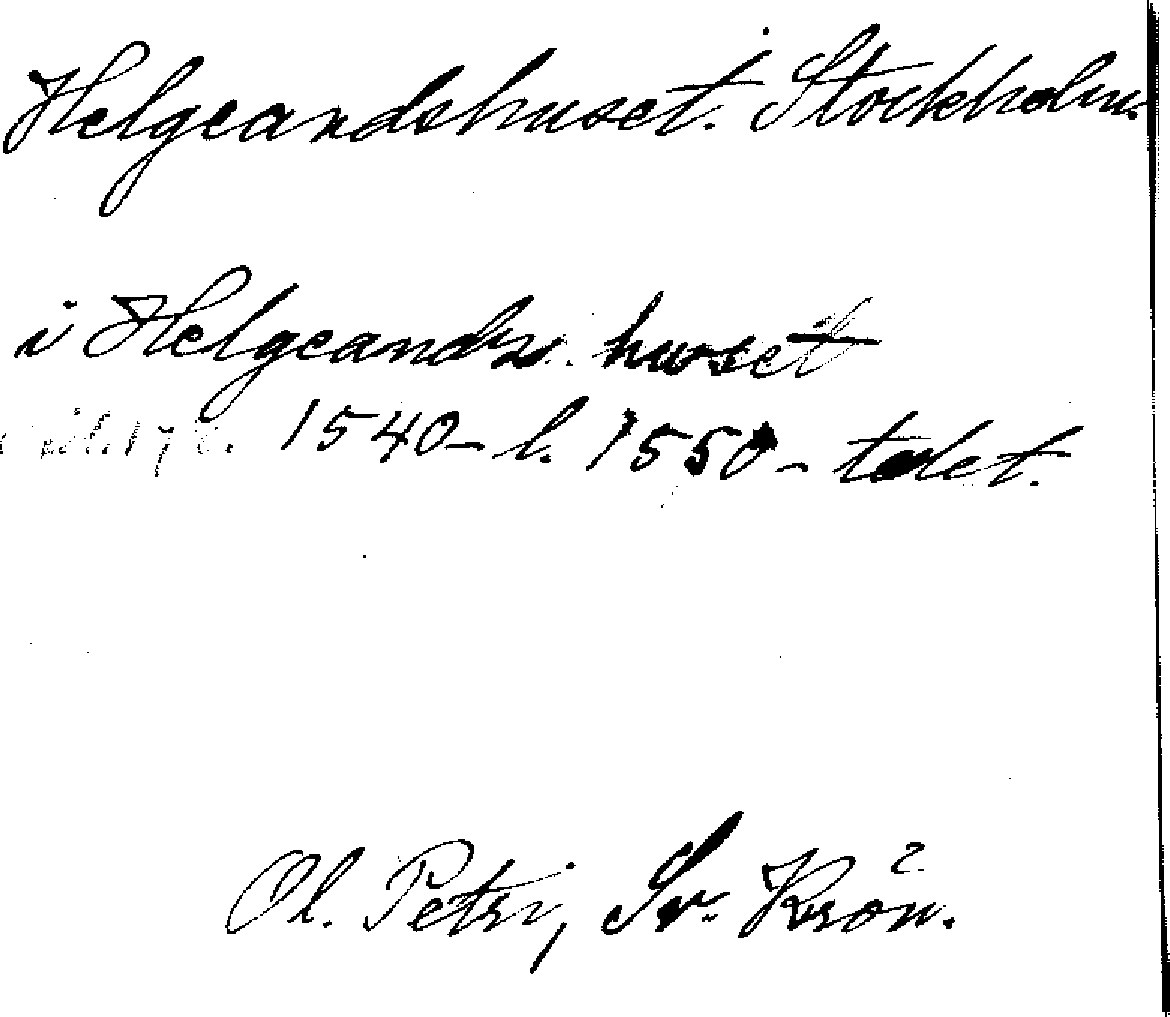 Helgeandshuset. Stockholm.
i Helgeands. huset
1540- l. 1550- talet.
Ol. Petri, Sv. Krön.